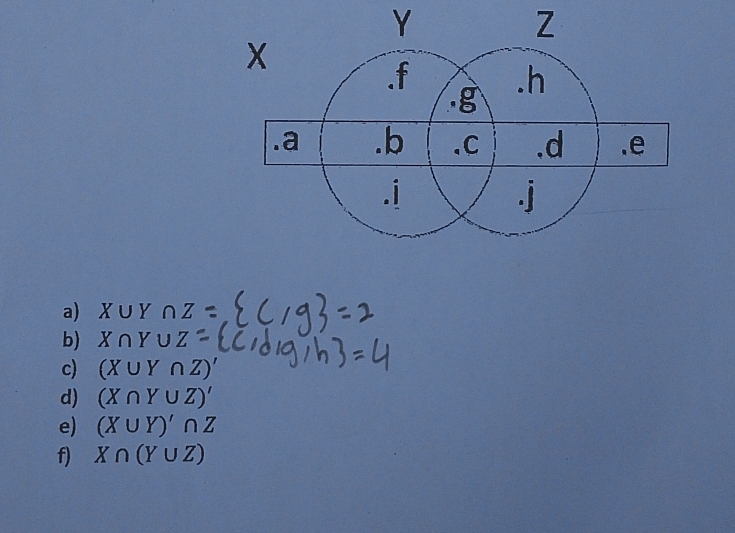 Y Z
X
.f .h
.g
.a .b .c .d .e
.i .j
a) X ∪ Y ∩ Z = {c,g} = 2
b) X ∩ Y ∪ Z = {c,d,g,h} = 4
c) (X ∪ Y ∩ Z)′
d) (X ∩ Y ∪ Z)′
e) (X ∪ Y)′ ∩ Z
f) X ∩ (Y ∪ Z)